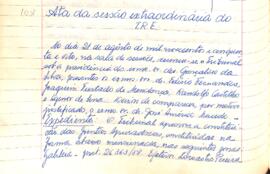 Ata da sessão extraordinária do
T.R.E.
No dia 21 de agosto de mil novecentos e cinquen-
ta e oito, na sala de sessões, reuniu-se o Tribunal
sob a presidência do exmo sr. des. Gonçalves da
Silva, presentes os exmos srs. drs. Fernandes,
Joaquim Furtado de Mendonça, Coelho
e Lima. Deixou de comparecer por motivo
justificado, o exmo sr. dr. José Américo Macedo.
Expediente. O Tribunal aprovou a constitui-
ção das Juntas Apuradoras, constituídas na
forma abaixo mencionada, nas seguintes zonas